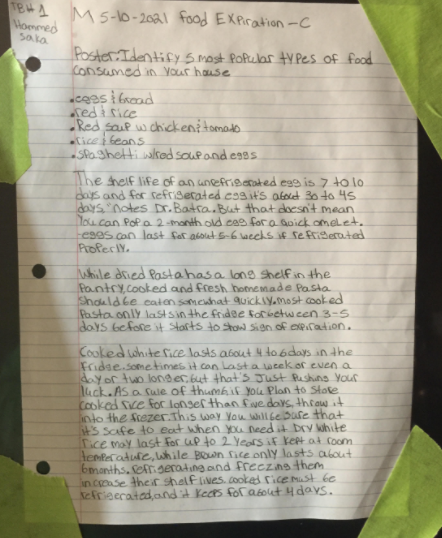 TBH 1
Hammed
Saka
M 5-10-2021 Food Expiration-C
Poster: Identify 5 most Popular types of food
consumed in your house
• eggs & bread
• red & rice
• Red soup w chicken & tomato
• rice & beans
• spaghetti w/red soup and eggs
The shelf life of an unrefrigerated egg is 7 to 10
days and for refrigerated egg it's about 30 to 45
days," notes Dr. Batra. But that doesn't mean
you can pop a 2-month old egg for a quick omelet.
eggs can last for about 5-6 weeks if refrigerated
Properly.
While dried Pasta has a long shelf in the
Pantry, cooked and fresh homemade Pasta
should be eaten somewhat quickly. most cooked
Pasta only lasts in the fridge for between 3-5
days before it starts to show sign of expiration.
Cooked white rice lasts about 4 to 6 days in the
fridge. sometimes it can last a week or even a
day or two longer, but that's Just Pushing your
luck. As a rule of thumb if you Plan to store
cooked rice for longer than five days, throw it
into the frezzer. This way you will be sure that
it's safe to eat when you need it. Dry white
rice may last for up to 2 years if kept at room
temperature, while Brown rice only lasts about
6 months. refrigerating and freezing them
increase their shelf lives. cooked rice must be
refrigerated, and it keeps for about 4 days.